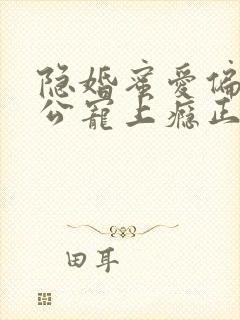 隐婚蜜爱偏
公宠上瘾正
田耳